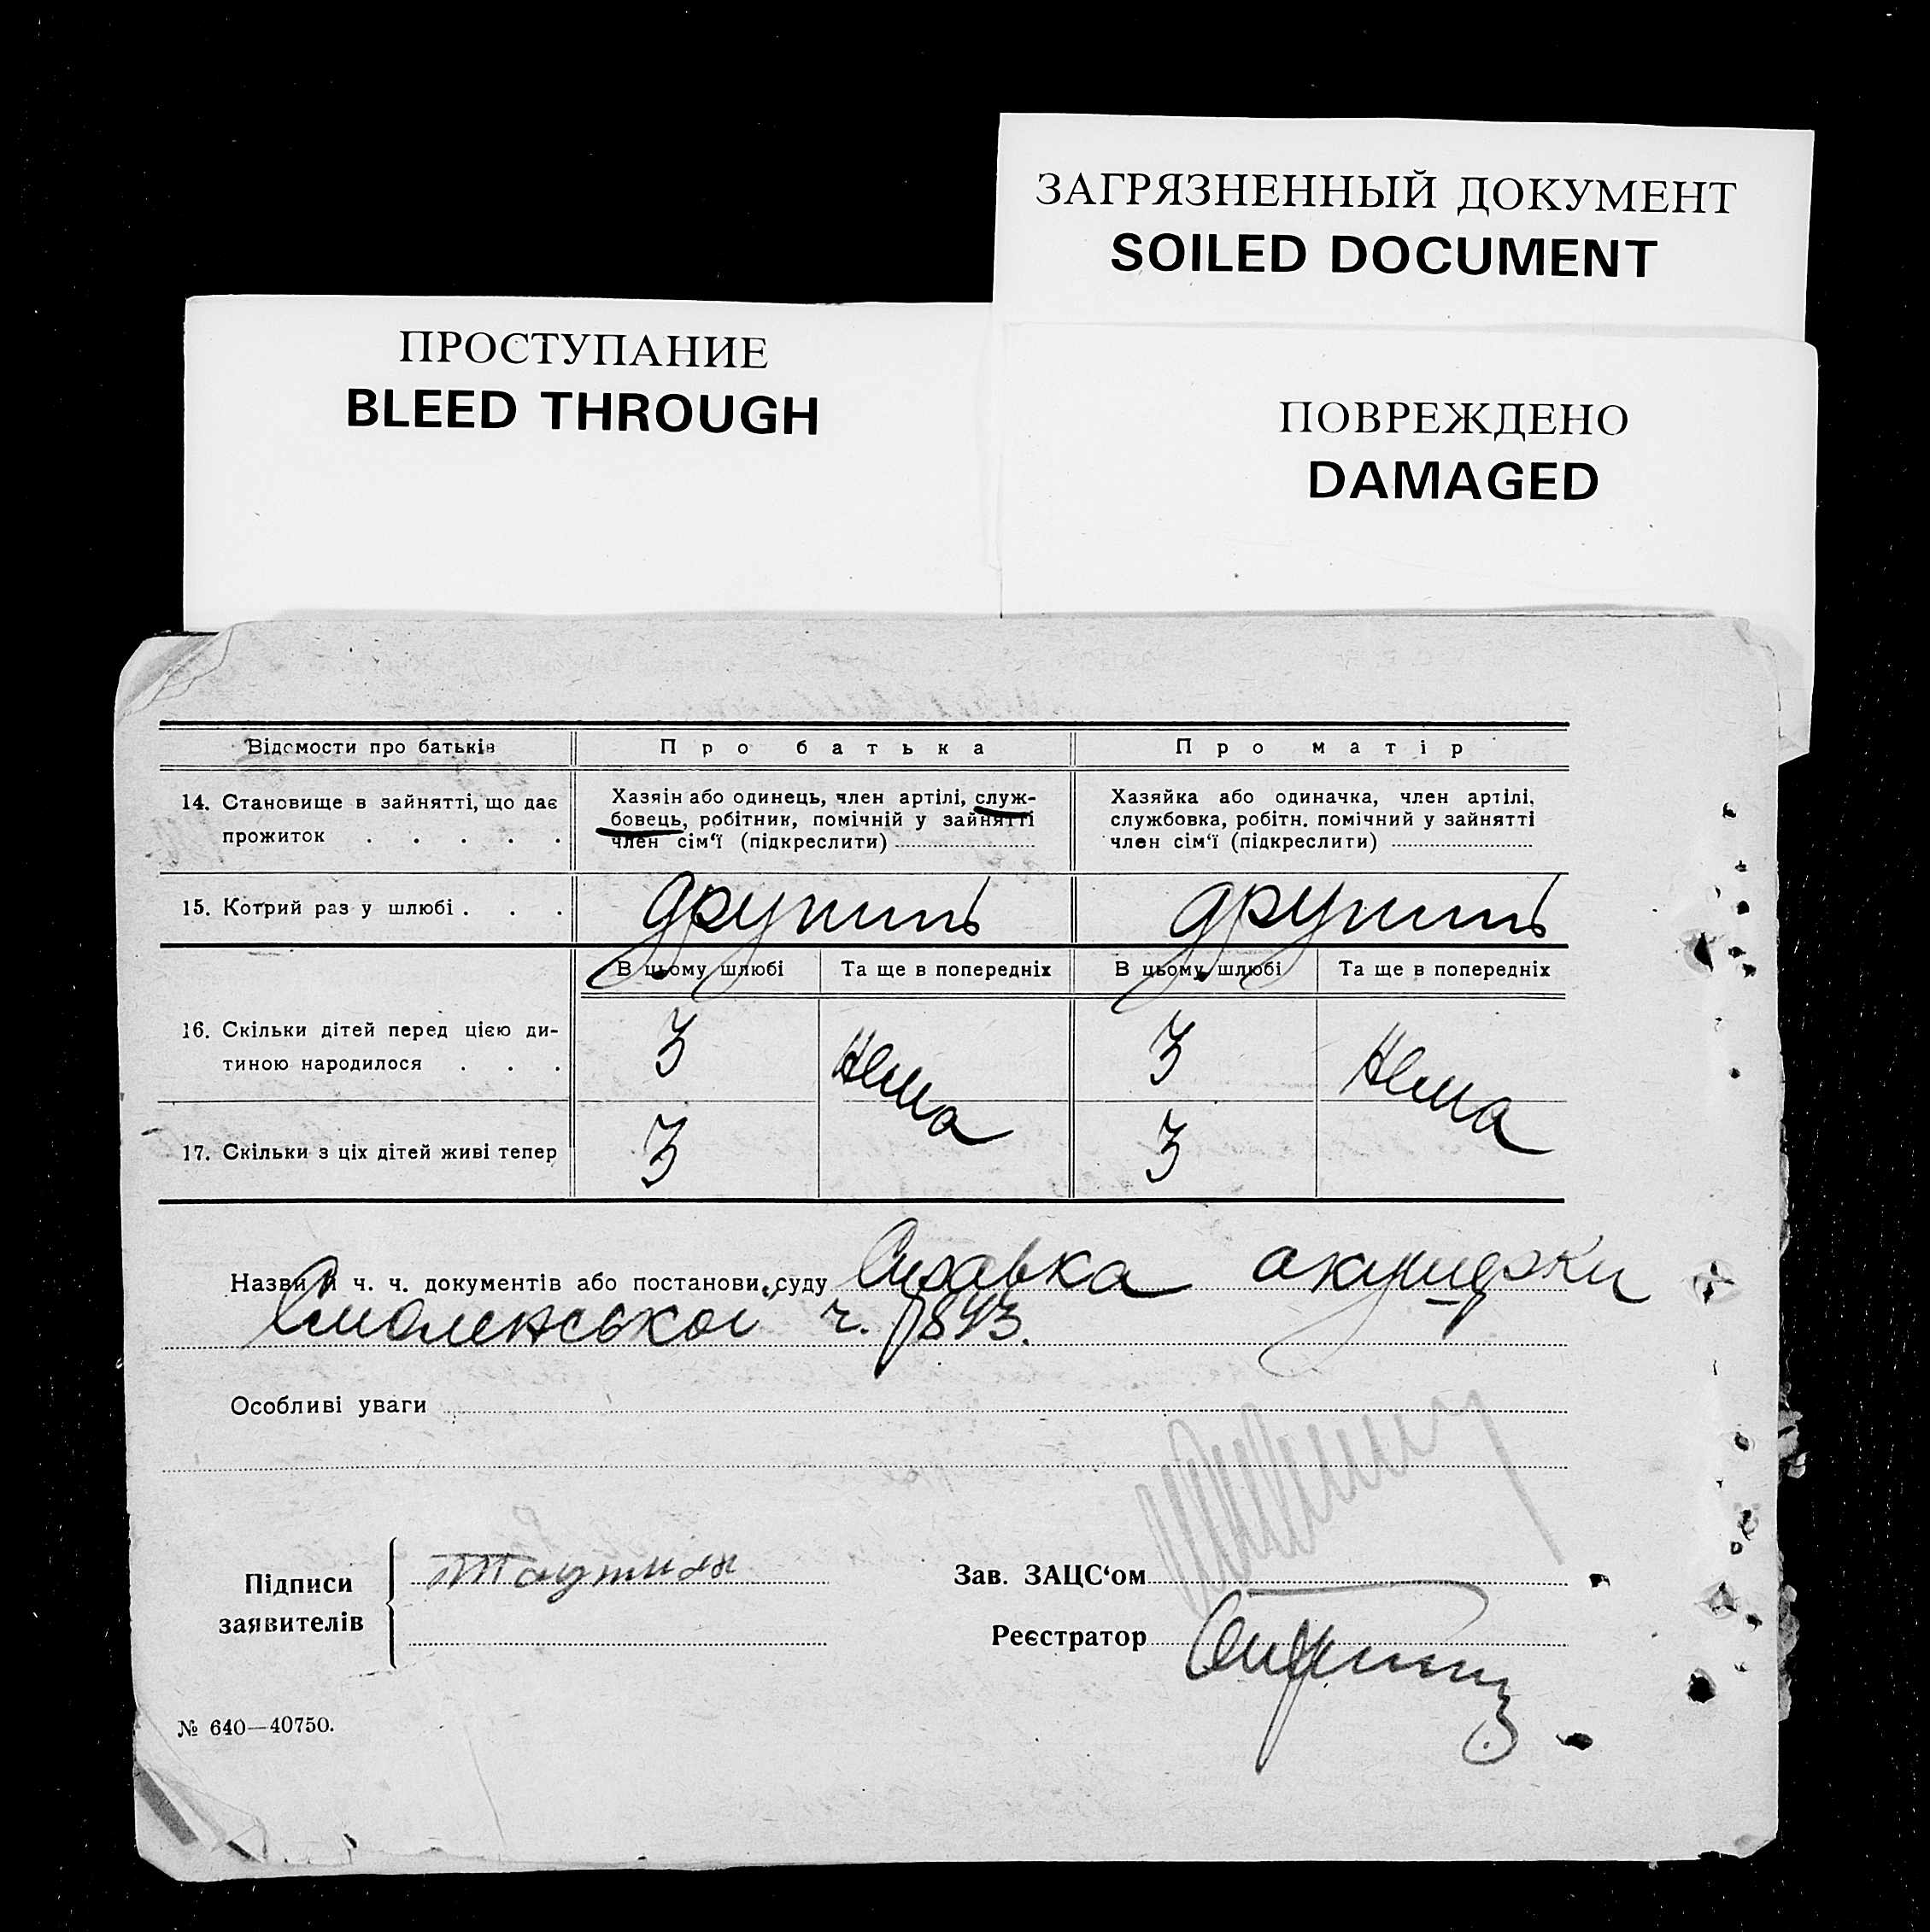 ЗАГРЯЗНЕННЫЙ ДОКУМЕНТ
SOILED DOCUMENT
ПРОСТУПАНИЕ
BLEED THROUGH
ПОВРЕЖДЕНО
DAMAGED
Відомости про батьків
Про батька
Про матір
14. Становище в зайнятті, що дає
прожиток . . . . .
Хазяін або одинець, член артілі, служ-
бовець, робітник, помічній у зайнятті
член сім‘ї (підкреслити)
Хазяйка або одиначка, член артілі,
службовка, робітн. помічний у зайнятті
член сім‘ї (підкреслити)
15. Котрий раз у шлюбі . . .
другий
другий
В цьому шлюбі
Та ще в попередніх
В цьому шлюбі
Та ще в попередніх
16. Скільки дітей перед цією ди-
тиною народилося . . .
3
нема
3
нема
17. Скільки з ціх дітей живі тепер
3
3
Назви й ч. ч. документів або постанови суду Справка акушерки
Смоленської ч. 1893.
Особливі уваги
Підписи
заявителів
Зав. ЗАЦС‘ом
Реєстратор
№ 640—40750.